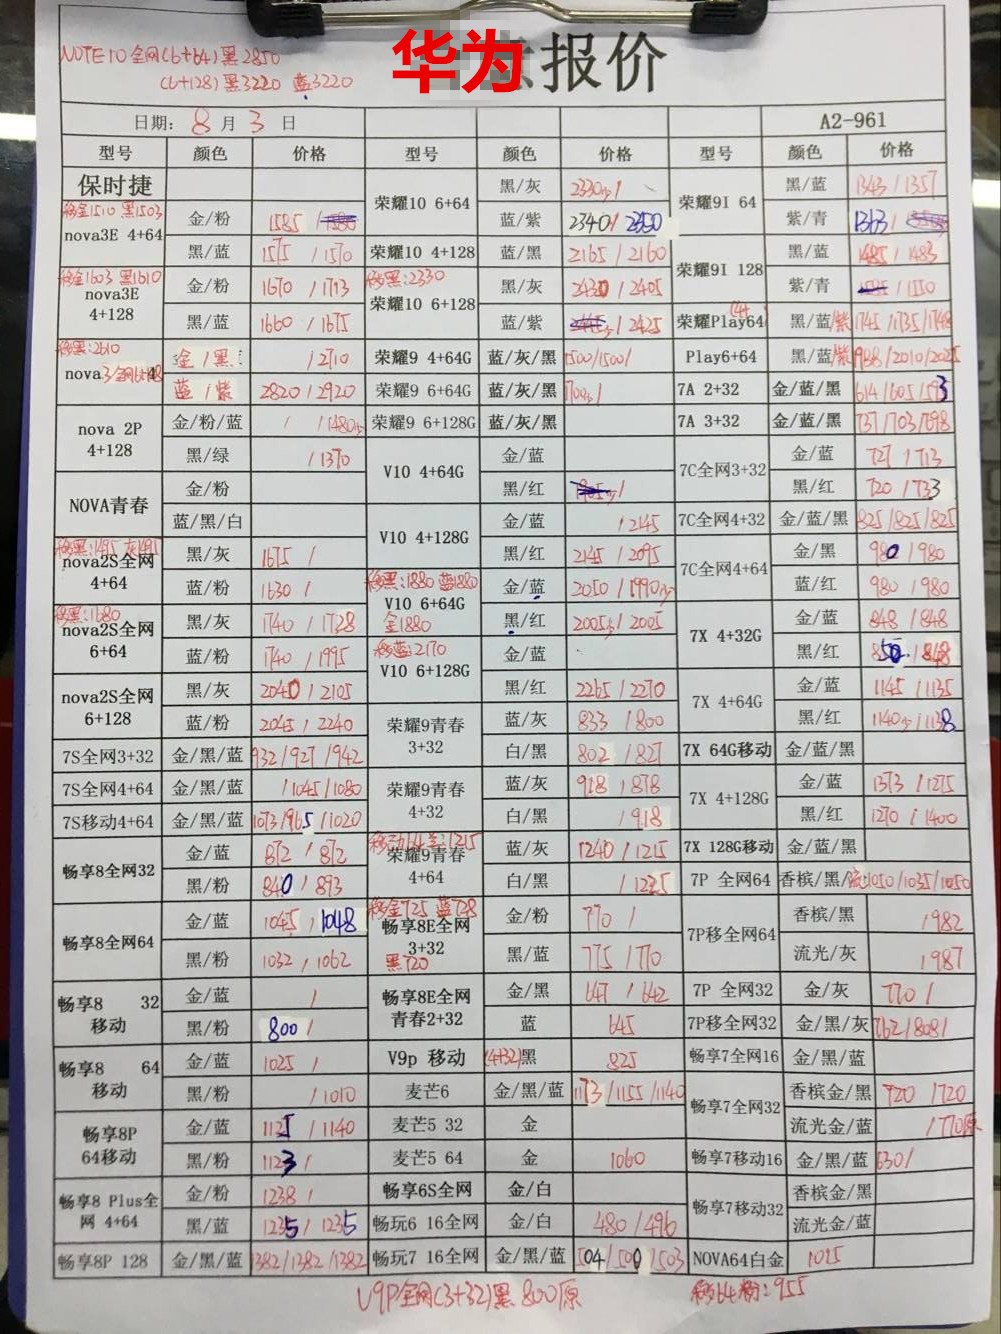 NOTE10全网(6+64)黑2850
(6+128)黑3220 蓝3220
华为 报价
日期: 8月3日 A2-961
型号 颜色 价格 型号 颜色 价格 型号 颜色 价格
保时捷
移金1510 黑1503
nova3E 4+64 金/粉 1585 /
黑/蓝 1575 / 1570
移金1603 黑1610
nova3E 4+128 金/粉 1670 / 1713
黑/蓝 1660 / 1675
移黑:2610
nova 3/全网6+128 金/黑 / 2710
蓝/紫 2820 / 2920
nova 2P 4+128 金/粉/蓝 / 1480
黑/绿 / 1370
NOVA青春 金/粉
蓝/黑/白
移黑:1495 灰1495
nova2S全网 4+64 黑/灰 1675 /
蓝/粉 1630 /
移黑:1680
nova2S全网 6+64 黑/灰 1740 / 1728
蓝/粉 1740 / 1995
nova2S全网 6+128 黑/灰 2040 / 2105
蓝/粉 2045 / 2240
7S全网3+32 金/黑/蓝 932/927/942
7S全网4+64 金/黑/蓝 /1045/1080
7S移动4+64 金/黑/蓝 1073/965/1020
畅享8全网32 金/蓝 872 / 872
黑/粉 840 / 893
畅享8全网64 金/蓝 1045 / 1048
黑/粉 1032 / 1062
畅享8 32 移动 金/蓝 /
黑/粉 800 /
畅享8 64 移动 金/蓝 1025 /
黑/粉 / 1010
畅享8P 64移动 金/蓝 1125 / 1140
黑/粉 1123 /
畅享8 Plus全网 4+64 金/粉 1238 /
黑/蓝 1235 / 1235
畅享8P 128 金/黑/蓝 1382/1382/1382
荣耀10 6+64 黑/灰 2330 /
蓝/紫 2340 / 2350
荣耀10 4+128 蓝/黑 2165 / 2160
移黑:2330
荣耀10 6+128 黑/灰 2430 / 2405
蓝/紫 / 2425
荣耀9 4+64G 蓝/灰/黑 1500/1500/
荣耀9 6+64G 蓝/灰/黑 1700/
荣耀9 6+128G 蓝/灰/黑
V10 4+64G 金/蓝
黑/红 /
V10 4+128G 金/蓝 / 2145
黑/红 2145 / 2095
移黑:1880 蓝1880
金1880
V10 6+64G 金/蓝 2050 / 1990
黑/红 2005 / 2005
移蓝:2170
V10 6+128G 金/蓝
黑/红 2265 / 2270
荣耀9青春 3+32 蓝/灰 833 / 800
白/黑 802 / 827
荣耀9青春 4+32 蓝/灰 918 / 878
白/黑 / 918
荣耀9青春 4+64 蓝/灰 1240 / 1215
白/黑 / 1225
移金725 蓝728
黑720
畅享8E全网 3+32 金/粉 770 /
黑/蓝 775 / 770
畅享8E全网 青春2+32 金/黑 647 / 642
蓝 645
V9p 移动 (4+32)黑 825
麦芒6 金/黑/蓝 1173/1155/1140
麦芒5 32 金
麦芒5 64 金 1060
畅享6S全网 金/白
畅玩6 16全网 金/白 480 / 496
畅玩7 16全网 金/黑/蓝 504/500/503
荣耀9I 64 黑/蓝 1343 / 1357
紫/青 1363 /
荣耀9I 128 黑/蓝 1485 / 1483
紫/青 / 1550
荣耀Play64 (4+ 黑/蓝/紫 1745/1735/1748
Play6+64 黑/蓝/紫 1988/2010/2025
7A 2+32 金/蓝/黑 614/605/593
7A 3+32 金/蓝/黑 737/703/698
7C全网3+32 金/蓝 727 / 713
黑/红 720 / 733
7C全网4+32 金/蓝/黑 825/825/825
7C全网4+64 金/黑 980 / 980
蓝/红 980 / 980
7X 4+32G 金/蓝 848 / 848
黑/红 850 / 848
7X 4+64G 金/蓝 1145 / 1135
黑/红 1140 / 1138
7X 64G移动 金/蓝/黑
7X 4+128G 金/蓝 1373 / 1275
黑/红 1270 / 1400
7X 128G移动 金/蓝/黑
7P 全网64 香槟/黑/ 1050/1035/1050
7P移全网64 香槟/黑 / 982
流光/灰 / 987
7P 全网32 金/灰 770 /
7P移全网32 金/黑/灰 762/808/
畅享7全网16 金/黑/蓝
畅享7全网32 香槟金/黑 720 / 720
流光金/蓝 / 770原
畅享7移动16 金/黑/蓝 630/
畅享7移动32 香槟金/黑
流光金/蓝
NOVA64白金 1015
V9P全网(3+32)黑 800原 移64粉:955